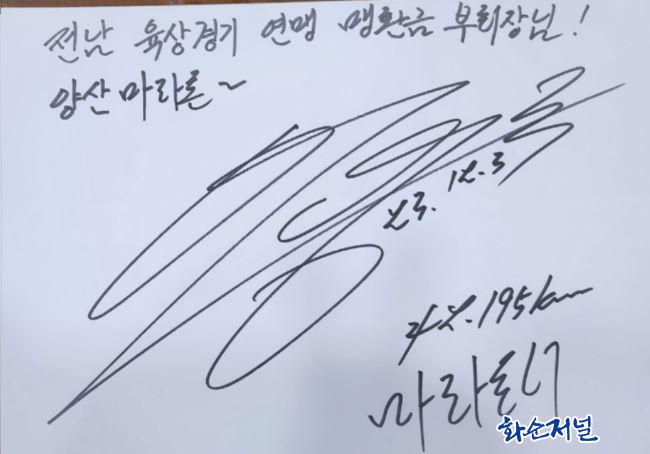 전남 육상경기 연맹 맹환금 부회장님!
양산 마라톤~
23. 12. 3
42.195km
마라토너
화순저널